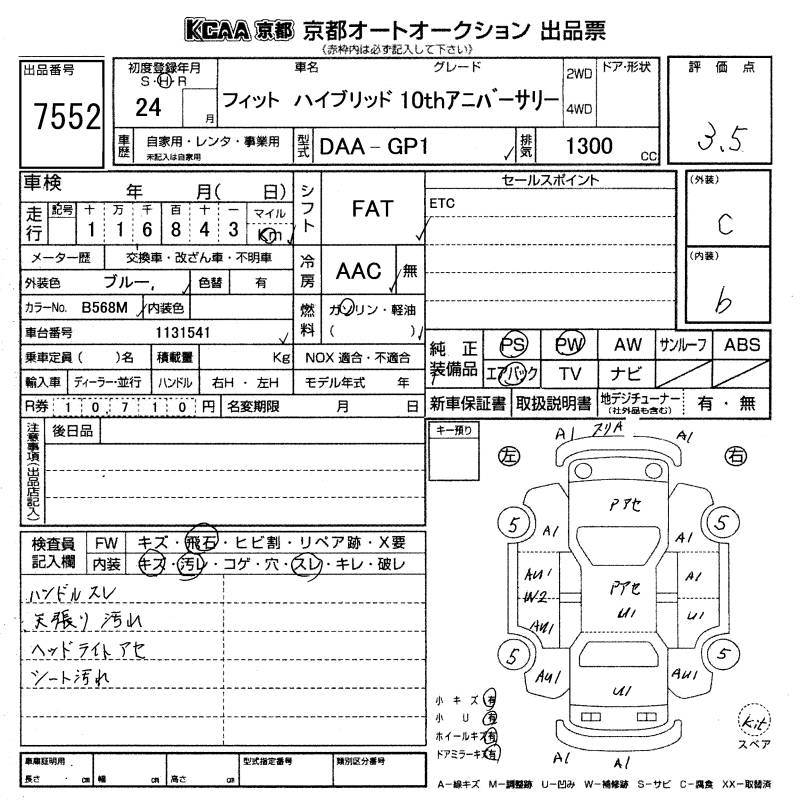 KCAA 京都 京都オートオークション 出品票
《赤枠内は必ず記入して下さい》
出品番号
7552
初度登録年月
S・H・R
24
月
車名 グレード
フィット ハイブリッド 10thアニバーサリー
2WD
4WD
ドア・形状
評価点
3.5
車歴
自家用・レンタ・事業用
未記入は自家用
型式
DAA－GP1
排気
1300
CC
車検 年 月( 日)
走行
記号 十 万 千 百 十 一 マイル
1 1 6 8 4 3 Km
シフト
FAT
セールスポイント
ETC
(外装)
C
(内装)
b
メーター歴 交換車・改ざん車・不明車
外装色 ブルー, 色替 有
冷房
AAC
無
カラーNo. B568M 内装色
燃料
ガソリン・軽油
( )
車台番号 1131541
乗車定員( )名 積載量 Kg NOX 適合・不適合
輸入車 ディーラー・並行 ハンドル 右H・左H モデル年式 年
R券 1 0, 7 1 0 円 名変期限 月 日
純正装備品
PS PW AW サンルーフ ABS
エアバック TV ナビ
新車保証書 取扱説明書 地デジチューナー(社外品も含む) 有・無
注意事項(出品店記入)
後日品
キー預り
左
右
A1 スリA A1
Pアセ
5 A1 A1 5
AU1 Pアセ A1
W2 U1 U1
AU1
5 AU1 AU1 5
U1
A1 A1
検査員記入欄
FW キズ・飛石・ヒビ割・リペア跡・X要
内装 キズ・汚レ・コゲ・穴・スレ・キレ・破レ
ハンドルスレ
天張り汚れ
ヘッドライトアセ
シート汚れ
小キズ 有
小U 有
ホイールキズ 有
ドアミラーキズ 有
Kit
スペア
車庫証明用
長さ . cm 幅 cm 高さ cm
型式指定番号
類別区分番号
A－線キズ M－調整跡 U－凹み W－補修跡 S－サビ C－腐食 XX－取替済